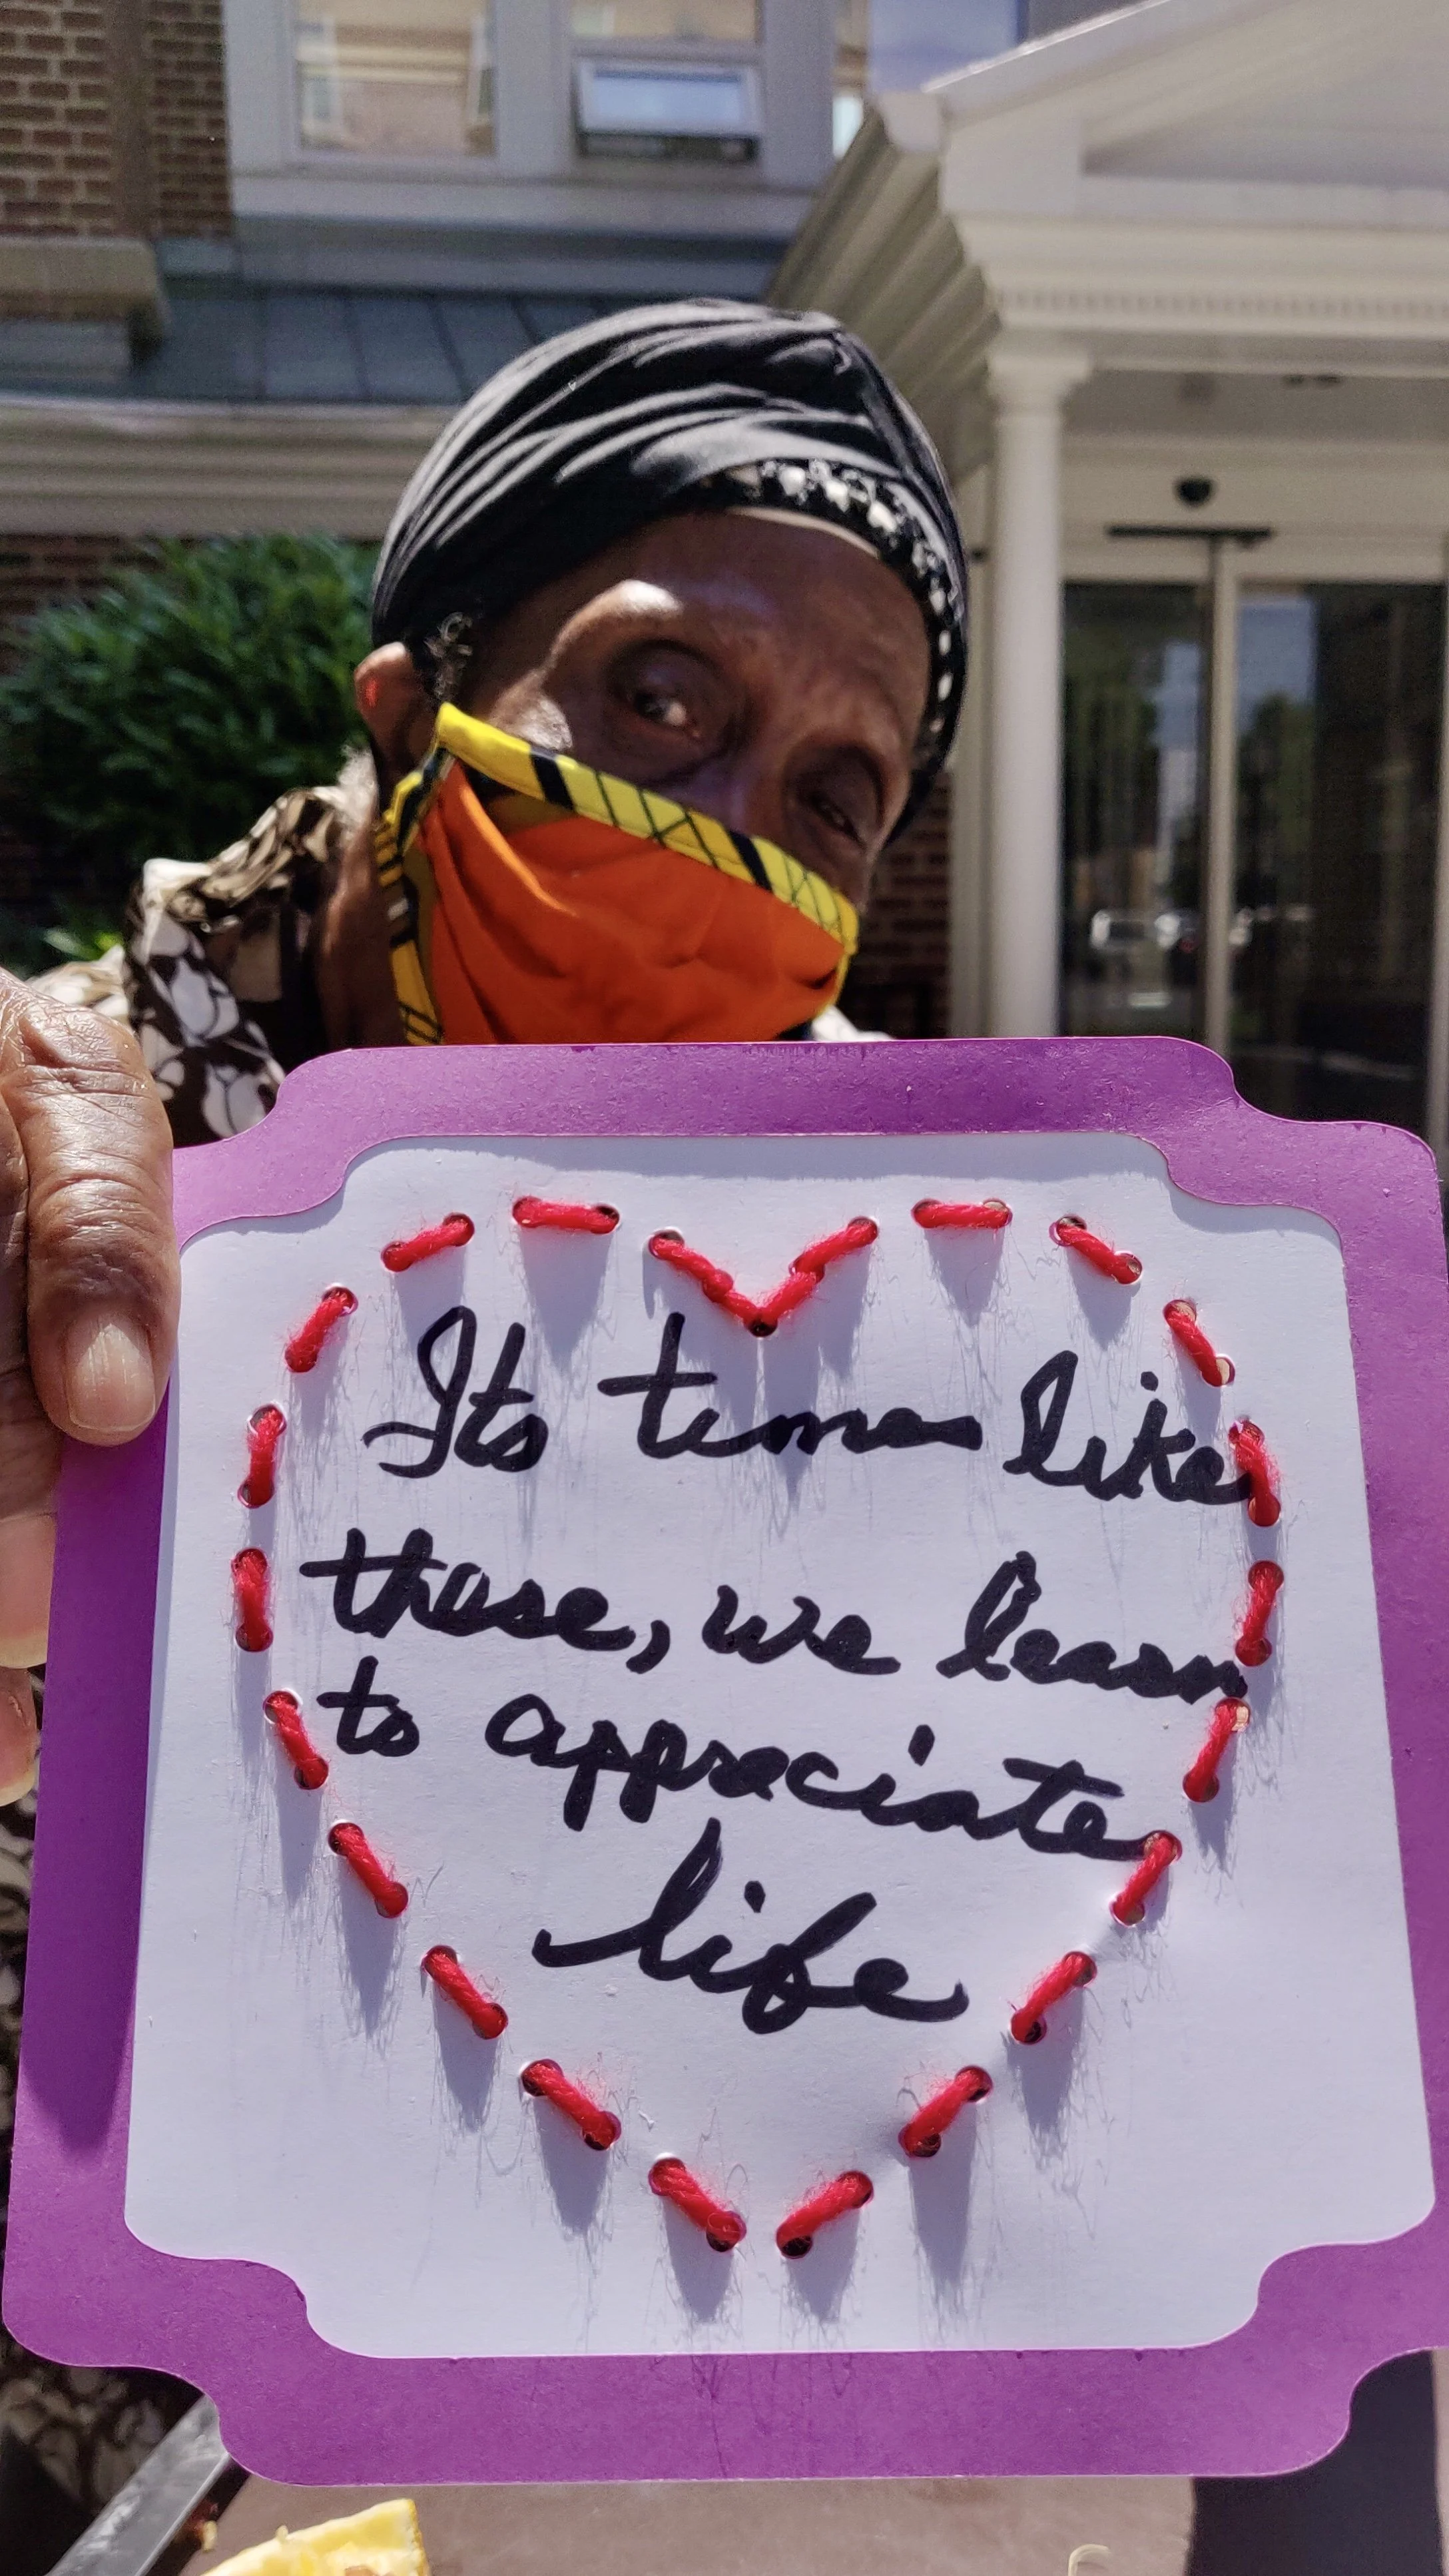 Its times like
those, we learn
to appreciate
life